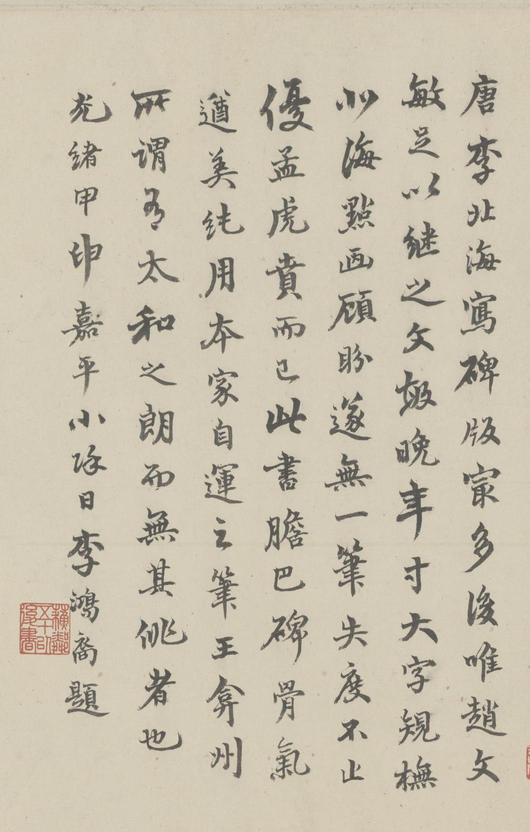 唐李北海寫碑版㝡多後唯趙文
敏足以继之文敏晚年寸大字規橅
北海點画顧盼遂無一筆失度不止
優孟虎賁而已此書膽巴碑骨氣
遒美純用本家自運之筆王弇州
所謂有太和之朗而無其佻者也
光緒甲申嘉平小除日李鴻裔題